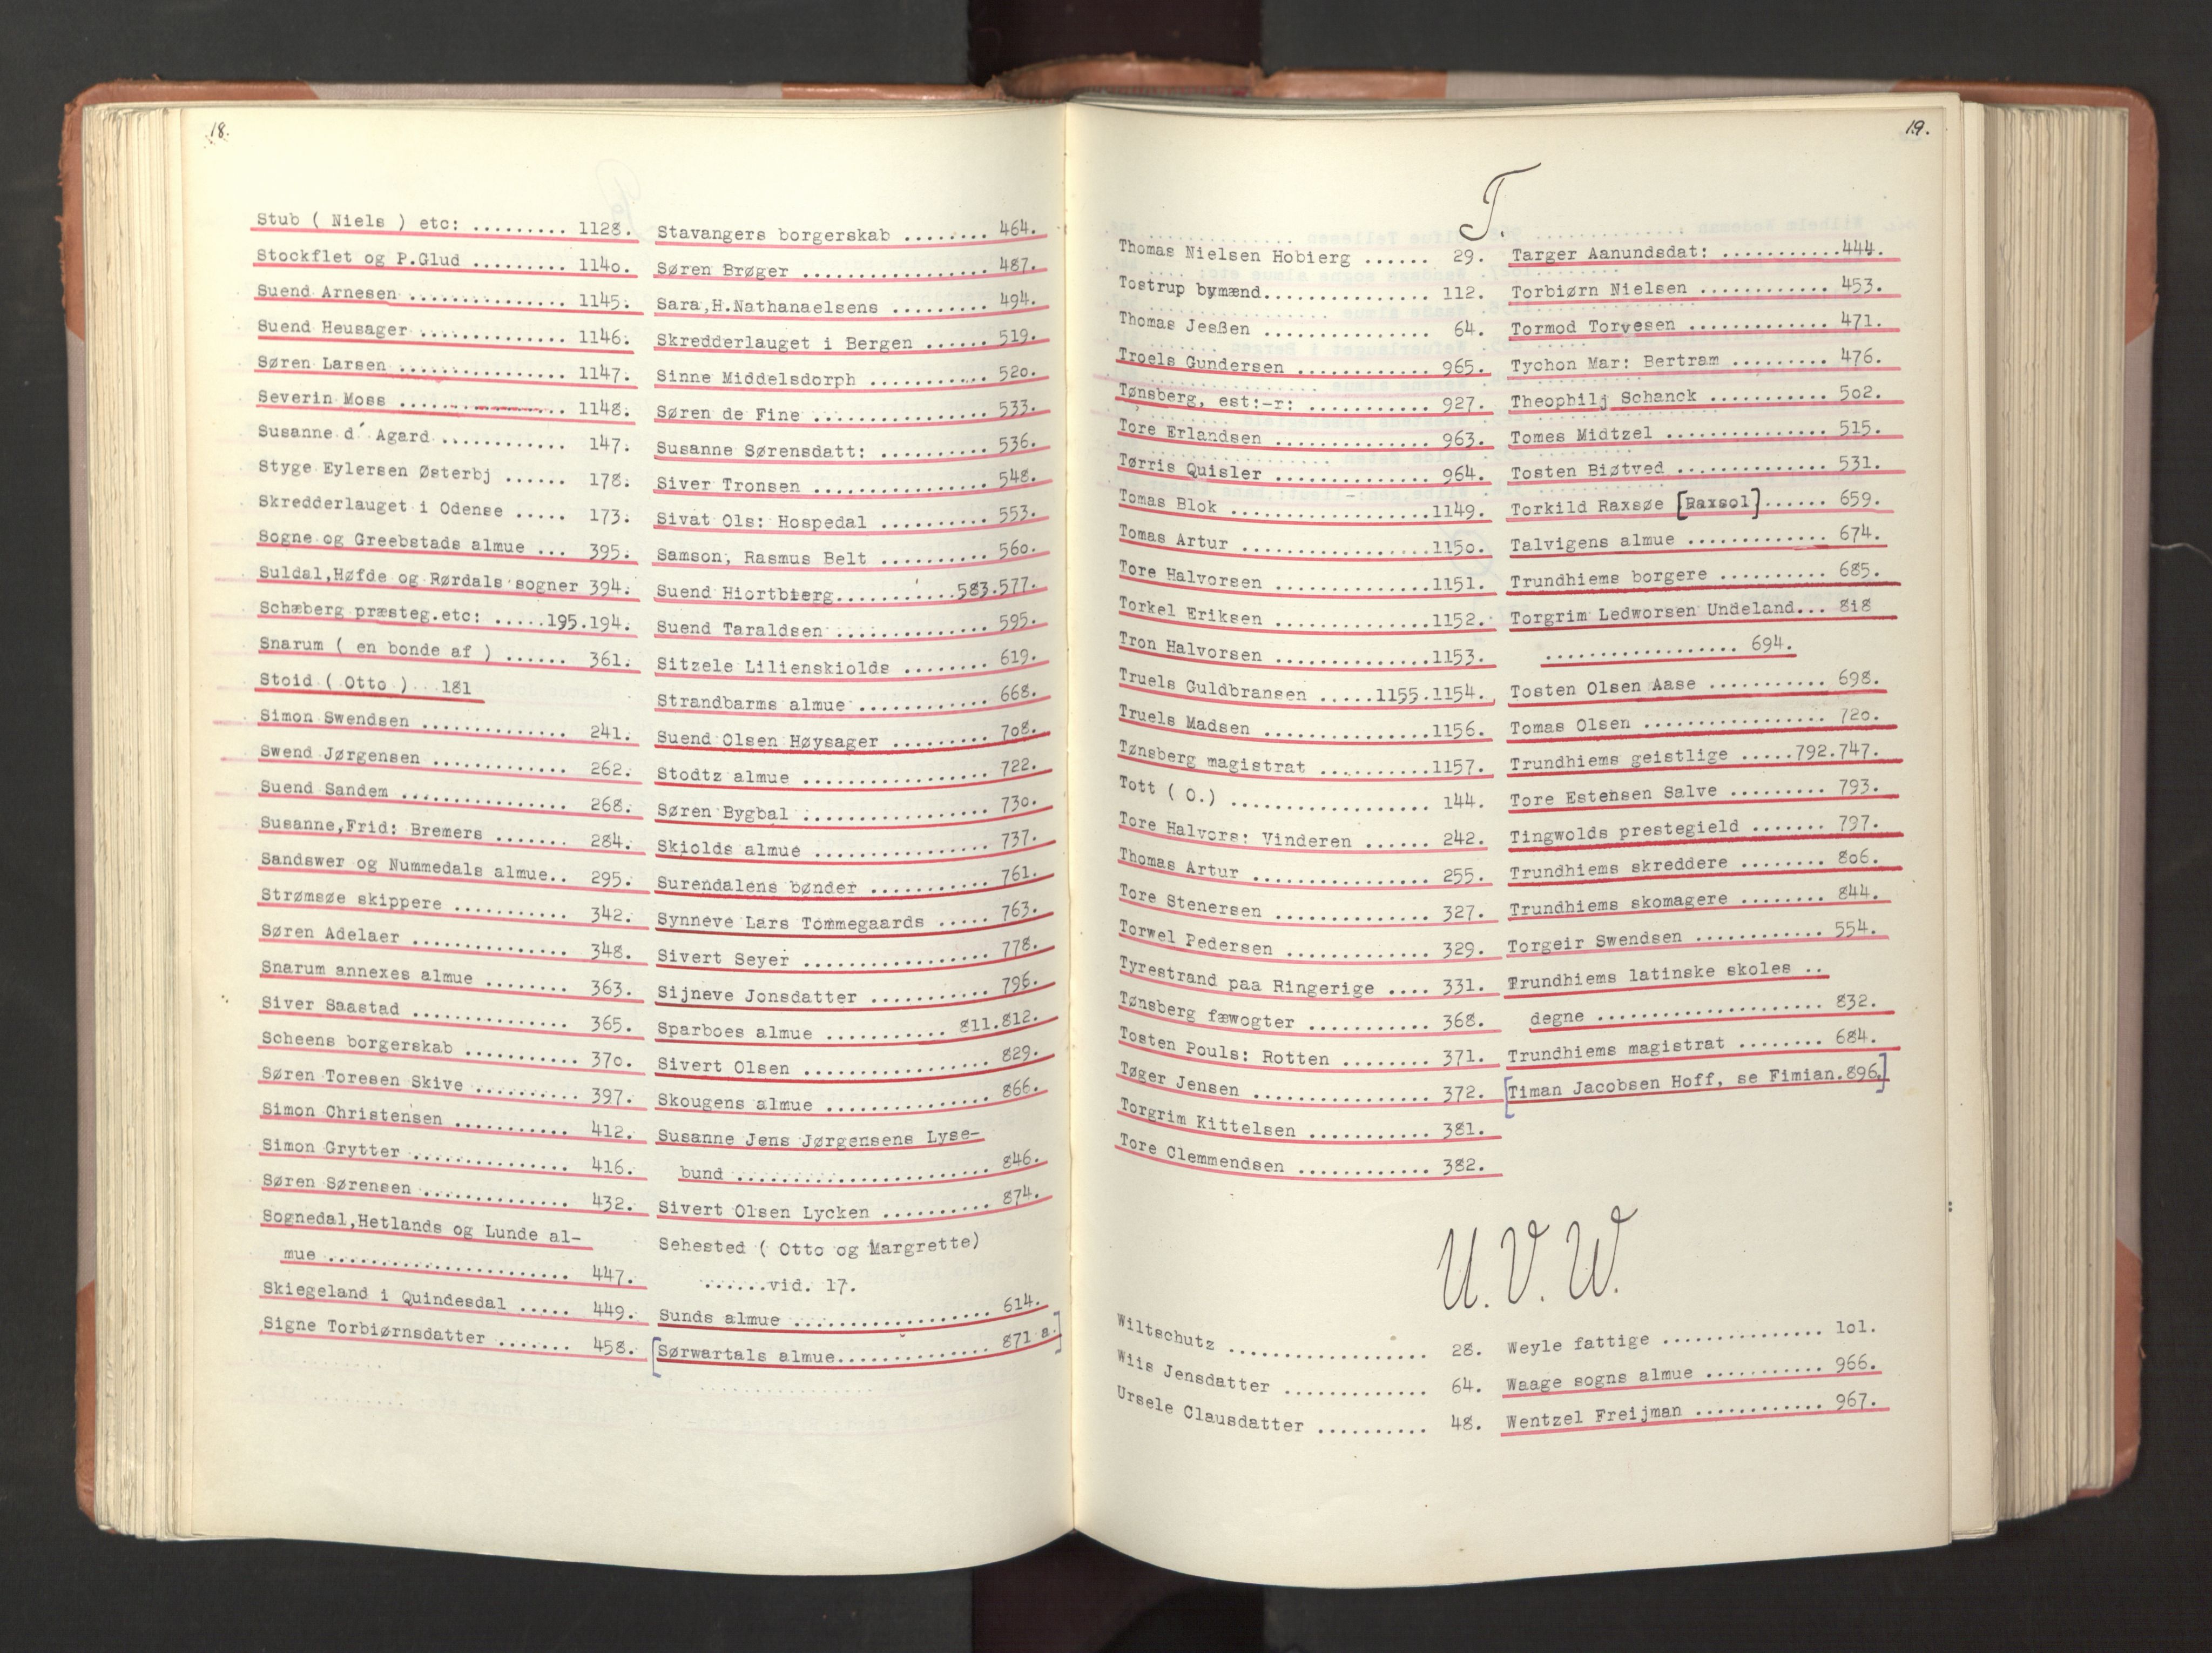 18.
Stub ( Niels ) etc: ......... 1128.
Stockflet og P.Glud ......... 1140.
Suend Arnesen ............... 1145.
Suend Heusager .............. 1146.
Søren Larsen ................ 1147.
Severin Moss ................ 1148.
Susanne d´ Agard ............ 147.
Styge Eylersen Østerbj ...... 178.
Skredderlauget i Odense ..... 173.
Sogne og Greebstads almue ... 395.
Suldal,Høfde og Rørdals sogner 394.
Schæberg præsteg.etc: .....195.194.
Snarum ( en bonde af ) ...... 361.
Stoid ( Otto ) ...181
Simon Swendsen .............. 241.
Swend Jørgensen ............. 262.
Suend Sandem ................ 268.
Susanne,Frid: Bremers ....... 284.
Sandswer og Nummedals almue.. 295.
Strømsøe skippere ........... 342.
Søren Adelaer ............... 348.
Snarum annexes almue ........ 363.
Siver Saastad ............... 365.
Scheens borgerskab .......... 370.
Søren Toresen Skive ......... 397.
Simon Christensen ........... 412.
Simon Grytter ............... 416.
Søren Sørensen .............. 432.
Sognedal,Hetlands og Lunde al-
mue ....................... 447.
Skiegeland i Quindesdal ..... 449.
Signe Torbiørnsdatter ....... 458.
Stavangers borgerskab ........ 464.
Søren Brøger ................. 487.
Sara,H.Nathanaelsens ......... 494.
Skredderlauget i Bergen ...... 519.
Sinne Middelsdorph ........... 520.
Søren de Fine ................ 533.
Susanne Sørensdatt: .......... 536.
Siver Tronsen ................ 548.
Sivat Ols: Hospedal .......... 553.
Samson, Rasmus Belt .......... 560.
Suend Hiortbierg...........583.577.
Suend Taraldsen .............. 595.
Sitzele Lilienskiolds ........ 619.
Strandbarms almue ............ 668.
Suend Olsen Høysager ......... 708.
Stodtz almue ................. 722.
Søren Bygbal ................. 730.
Skiolds almue ................ 737.
Surendalens bønder ........... 761.
Synneve Lars Tommegaards ..... 763.
Sivert Seyer ................. 778.
Sijneve Jonsdatter ........... 796.
Sparboes almue ........... 811.812.
Sivert Olsen ................. 829.
Skougens almue ............... 866.
Susanne Jens Jørgensens Lyse-
bund ....................... 846.
Sivert Olsen Lycken .......... 874.
Sehested ( Otto og Margrette)
.......vid. 17.
Sunds almue .................. 614.
[Sørwartals almue.............. 871 a.]
19.
T.
Thomas Nielsen Hobierg ...... 29.
Tostrup bymænd............... 112.
Thomas Jesßen ............... 64.
Troels Gundersen ............ 965.
Tønsberg, est:-r: ........... 927.
Tore Erlandsen .............. 963.
Tørris Quisler .............. 964.
Tomas Blok ..................1149.
Tomas Artur .................1150.
Tore Halvorsen ..............1151.
Torkel Eriksen ..............1152.
Tron Halvorsen ..............1153.
Truels Guldbransen .....1155.1154.
Truels Madsen ...............1156.
Tønsberg magistrat ..........1157.
Tott ( O.) .................. 144.
Tore Halvors: Vinderen ...... 242.
Thomas Artur ................ 255.
Tore Stenersen .............. 327.
Torwel Pedersen ............. 329.
Tyrestrand paa Ringerige .... 331.
Tønsberg fæwogter ........... 368.
Tosten Pouls: Rotten ........ 371.
Tøger Jensen ................ 372.
Torgrim Kittelsen ........... 381.
Tore Clemmendsen ............ 382.
Targer Aanundsdat: ...........444.
Torbiørn Nielsen ............ 453.
Tormod Torvesen ............. 471.
Tychon Mar: Bertram ......... 476.
Theophilj Schanck ........... 502.
Tomes Midtzel ............... 515.
Tosten Biøtved .............. 531.
Torkild Raxsøe [Raxsol]...... 659.
Talvigens almue ............. 674.
Trundhiems borgere .......... 685.
Torgrim Ledworsen Undeland... 818
.................. 694.
Tosten Olsen Aase ........... 698.
Tomas Olsen ................. 720.
Trundhiems geistlige .....792.747.
Tore Estensen Salve ......... 793.
Tingwolds prestegield ....... 797.
Trundhiems skreddere ........ 806.
Trundhiems skomagere ........ 844.
Torgeir Swendsen ............ 554.
Trundhiems latinske skoles ..
degne ..................... 832.
Trundhiems magistrat ........ 684.
[Timan Jacobsen Hoff, se Fimian.896.]
U. V. W.
Wiltschutz .................. 28.
Wiis Jensdatter ............. 64.
Ursele Clausdatter .......... 48.
Weyle fattige ............... 101.
Waage sogns almue ........... 966.
Wentzel Freijman ............ 967.